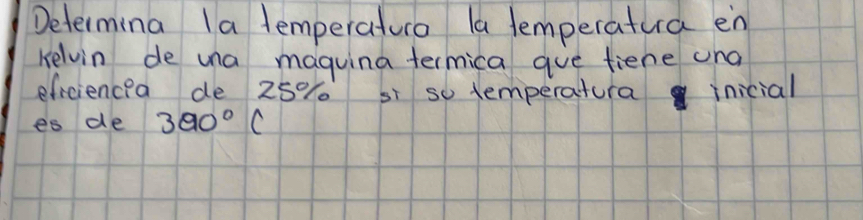 Determina la temperatura la temperatura en
Kelvin de una maquina termica que tiene una
eficiencia de 25% si su temperatura inicial
es de 390° C